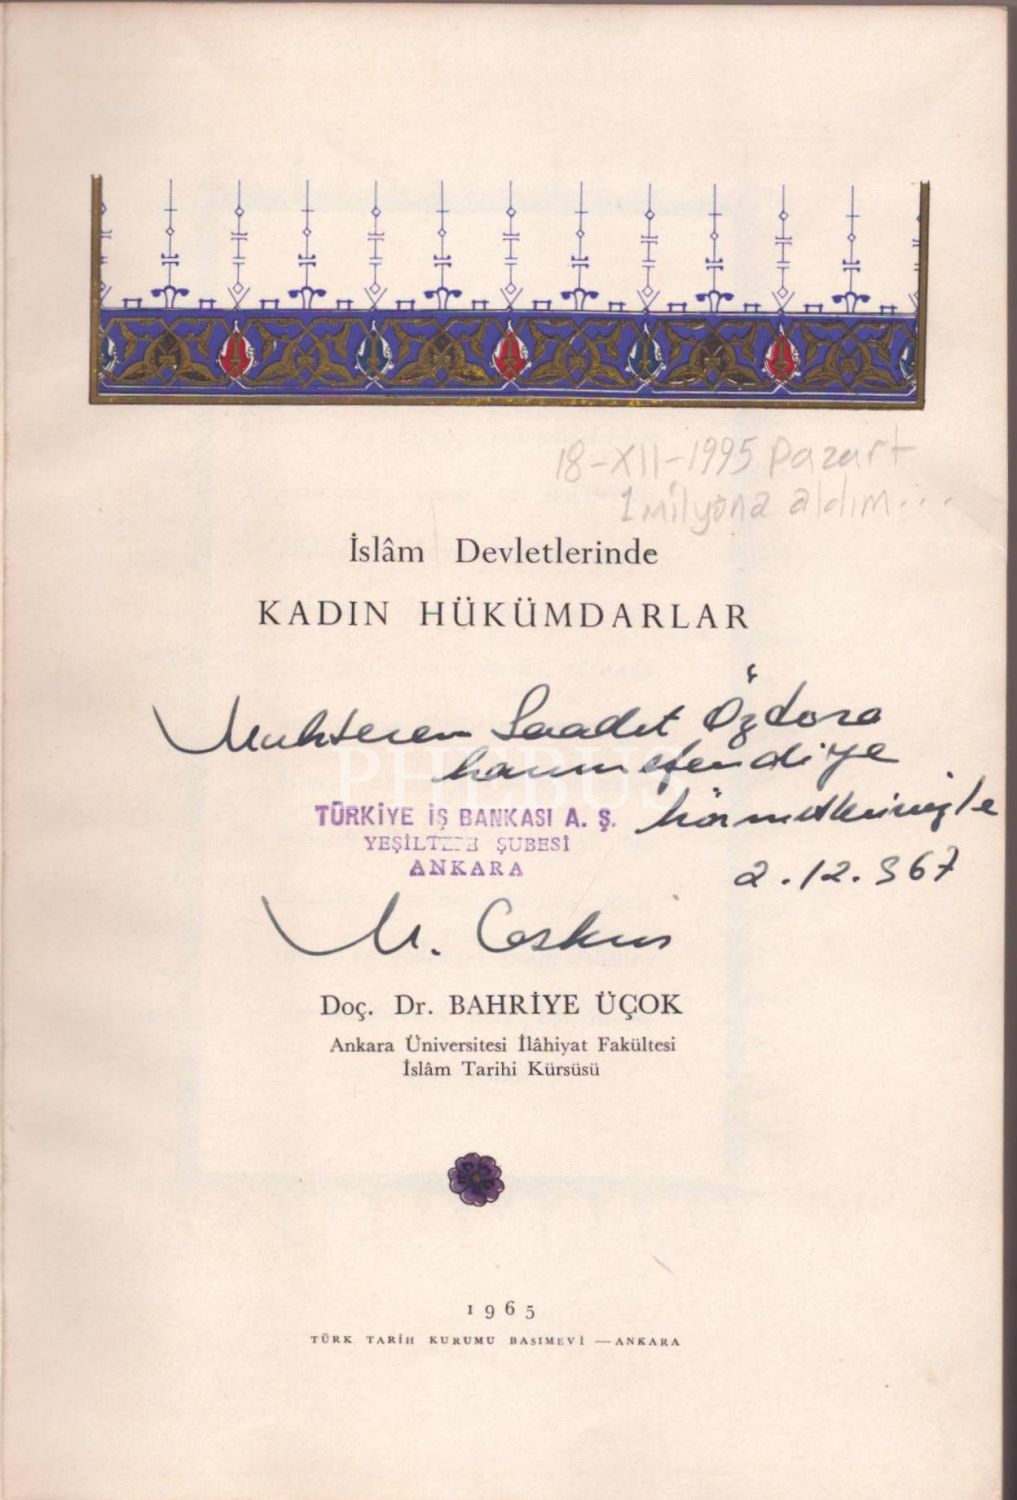 18-XII-1995 Pazart
1 milyona aldım...
İslâm Devletlerinde
KADIN HÜKÜMDARLAR
Muhterem Saadet Özdora
hanımefendiye
hörmetlerimizle
PHEBUS
TÜRKİYE İŞ BANKASI A. Ş.
YEŞİLTEPE ŞUBESİ
ANKARA
2.12.967
M.
Doç. Dr. BAHRİYE ÜÇOK
Ankara Üniversitesi İlâhiyat Fakültesi
İslâm Tarihi Kürsüsü
1965
TÜRK TARİH KURUMU BASIMEVİ — ANKARA